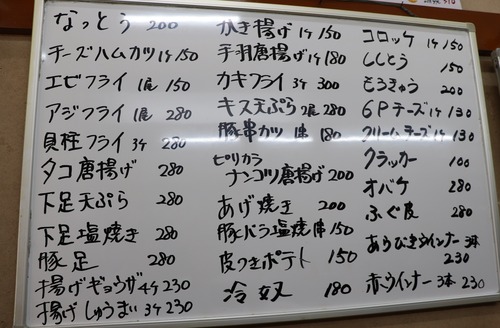 なっとう 200
チーズハムカツ 1ケ 150
エビフライ 1尾 150
アジフライ 1尾 280
貝柱フライ 3ケ 280
タコ唐揚げ 280
下足天ぷら 280
下足塩焼き 280
豚足 280
揚げギョウザ 4ケ 230
揚げしゅうまい 3ケ 230
かき揚げ 1ケ 150
手羽唐揚げ 1ケ 180
カキフライ 3ケ 300
キス天ぷら 2尾 280
豚串カツ 1串 180
ピリカラ
ナンコツ唐揚げ 200
あげ焼き 200
豚バラ塩焼 1串 150
皮つきポテト 150
冷奴 180
コロッケ 1ケ 150
ししとう 150
もろきゅう 200
6Pチーズ 1ケ 130
クリームチーズ 1ケ 130
クラッカー 100
オバケ 280
ふぐ皮 280
あらびきウインナー 3本
230
赤ウインナー 3本 230